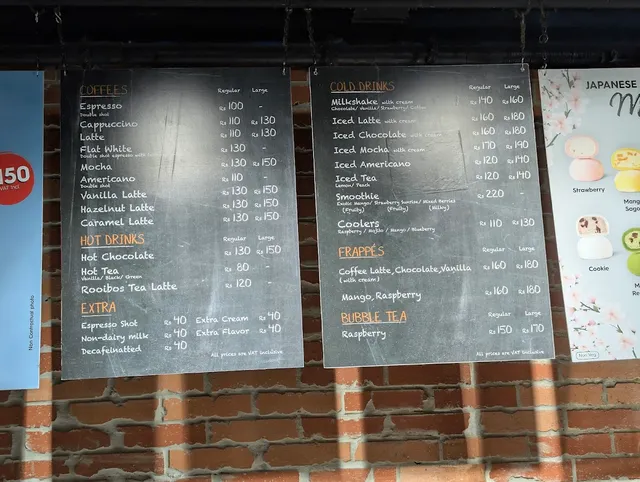 COFFEES Regular Large
Espresso Rs 100 -
Double shot
Cappuccino Rs 110 Rs 130
Latte Rs 110 Rs 130
Flat White Rs 130 -
Double shot espresso with
Mocha Rs 130 Rs 150
Americano Rs 110 -
Double shot
Vanilla Latte Rs 130 Rs 150
Hazelnut Latte Rs 130 Rs 150
Caramel Latte Rs 130 Rs 150
HOT DRINKS Regular Large
Hot Chocolate Rs 130 Rs 150
Hot Tea Rs 80 -
Vanilla/ Black/ Green
Rooibos Tea Latte Rs 120 -
EXTRA
Espresso Shot Rs 40 Extra Cream Rs 40
Non-dairy milk Rs 40 Extra Flavor Rs 40
Decafeinatted Rs 40
All prices are VAT inclusive
COLD DRINKS Regular Large
Milkshake with cream Rs 140 Rs 160
Chocolate/ Vanilla/ Strawberry/ Coffee
Iced Latte with cream Rs 160 Rs 180
Iced Chocolate with cream Rs 160 Rs 180
Iced Mocha with cream Rs 170 Rs 190
Iced Americano Rs 120 Rs 140
Iced Tea Rs 120 Rs 140
Lemon/ Peach
Smoothie Rs 220 -
Exotic Mango/ Strawberry Sunrise/ Mixed Berries
(Fruity) (Fruity) (Milky)
Coolers Rs 110 Rs 130
Raspberry / Mojito / Mango / Blueberry
FRAPPÉS Regular Large
Coffee Latte,Chocolate,Vanilla Rs 160 Rs 180
(with cream)
Mango,Raspberry Rs 160 Rs 180
BUBBLE TEA Regular Large
Raspberry Rs 150 Rs 170
All prices are VAT inclusive
150
VAT incl
Non Contractual photo
JAPANESE
M
Strawberry
Mang
Sago
Cookie